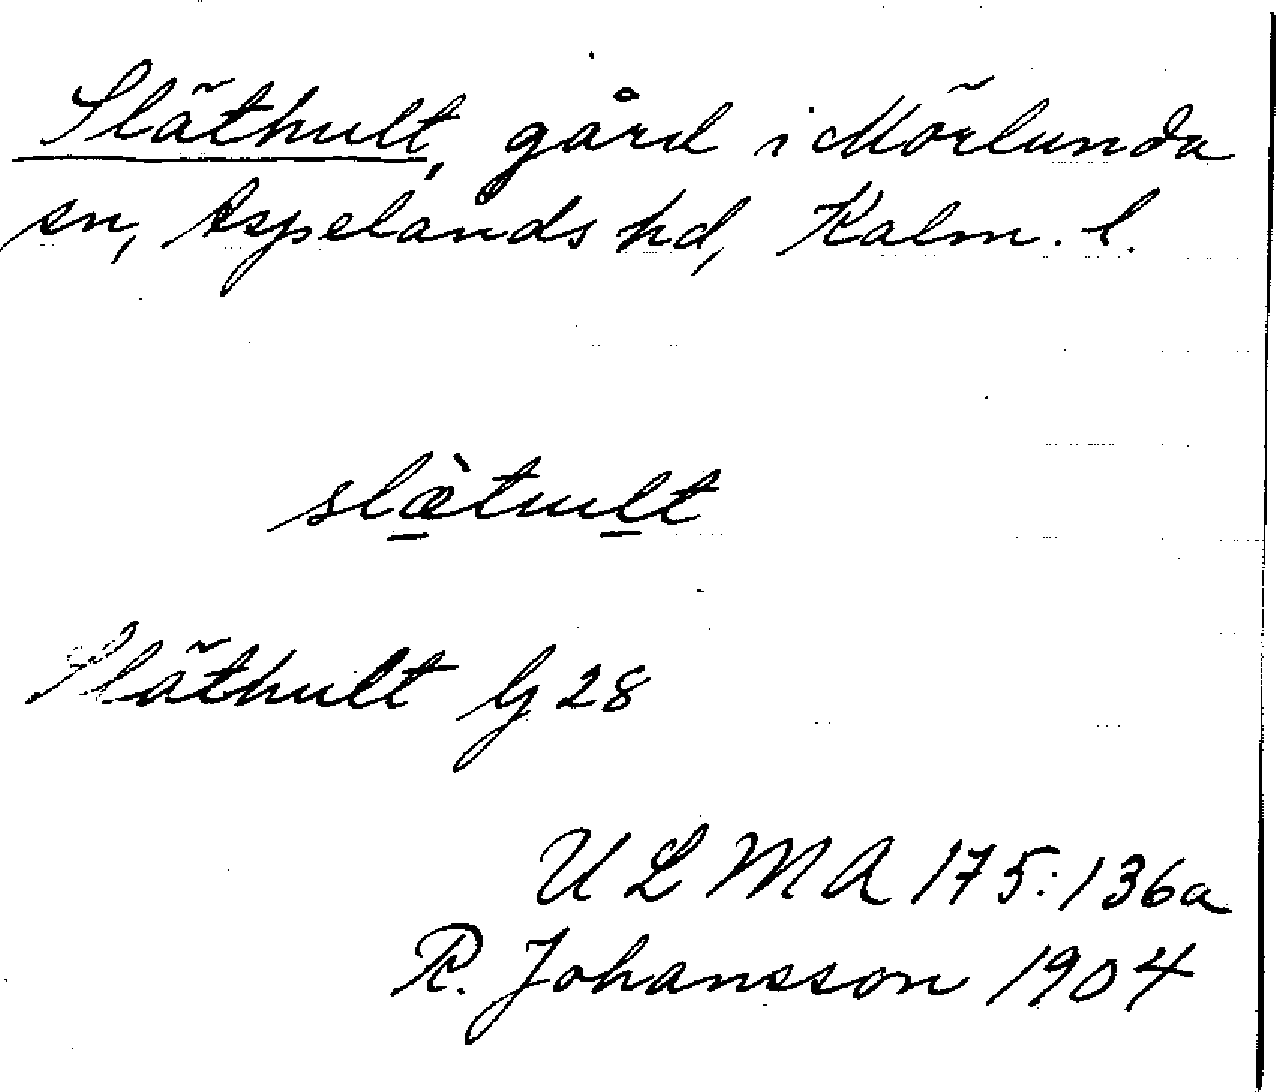 Släthult, gård i Mörlunda
sn, Aspelands hd, Kalm. l.
slæ̀tult
Släthult G 28
ULMA 175:136a
R. Johansson 1904